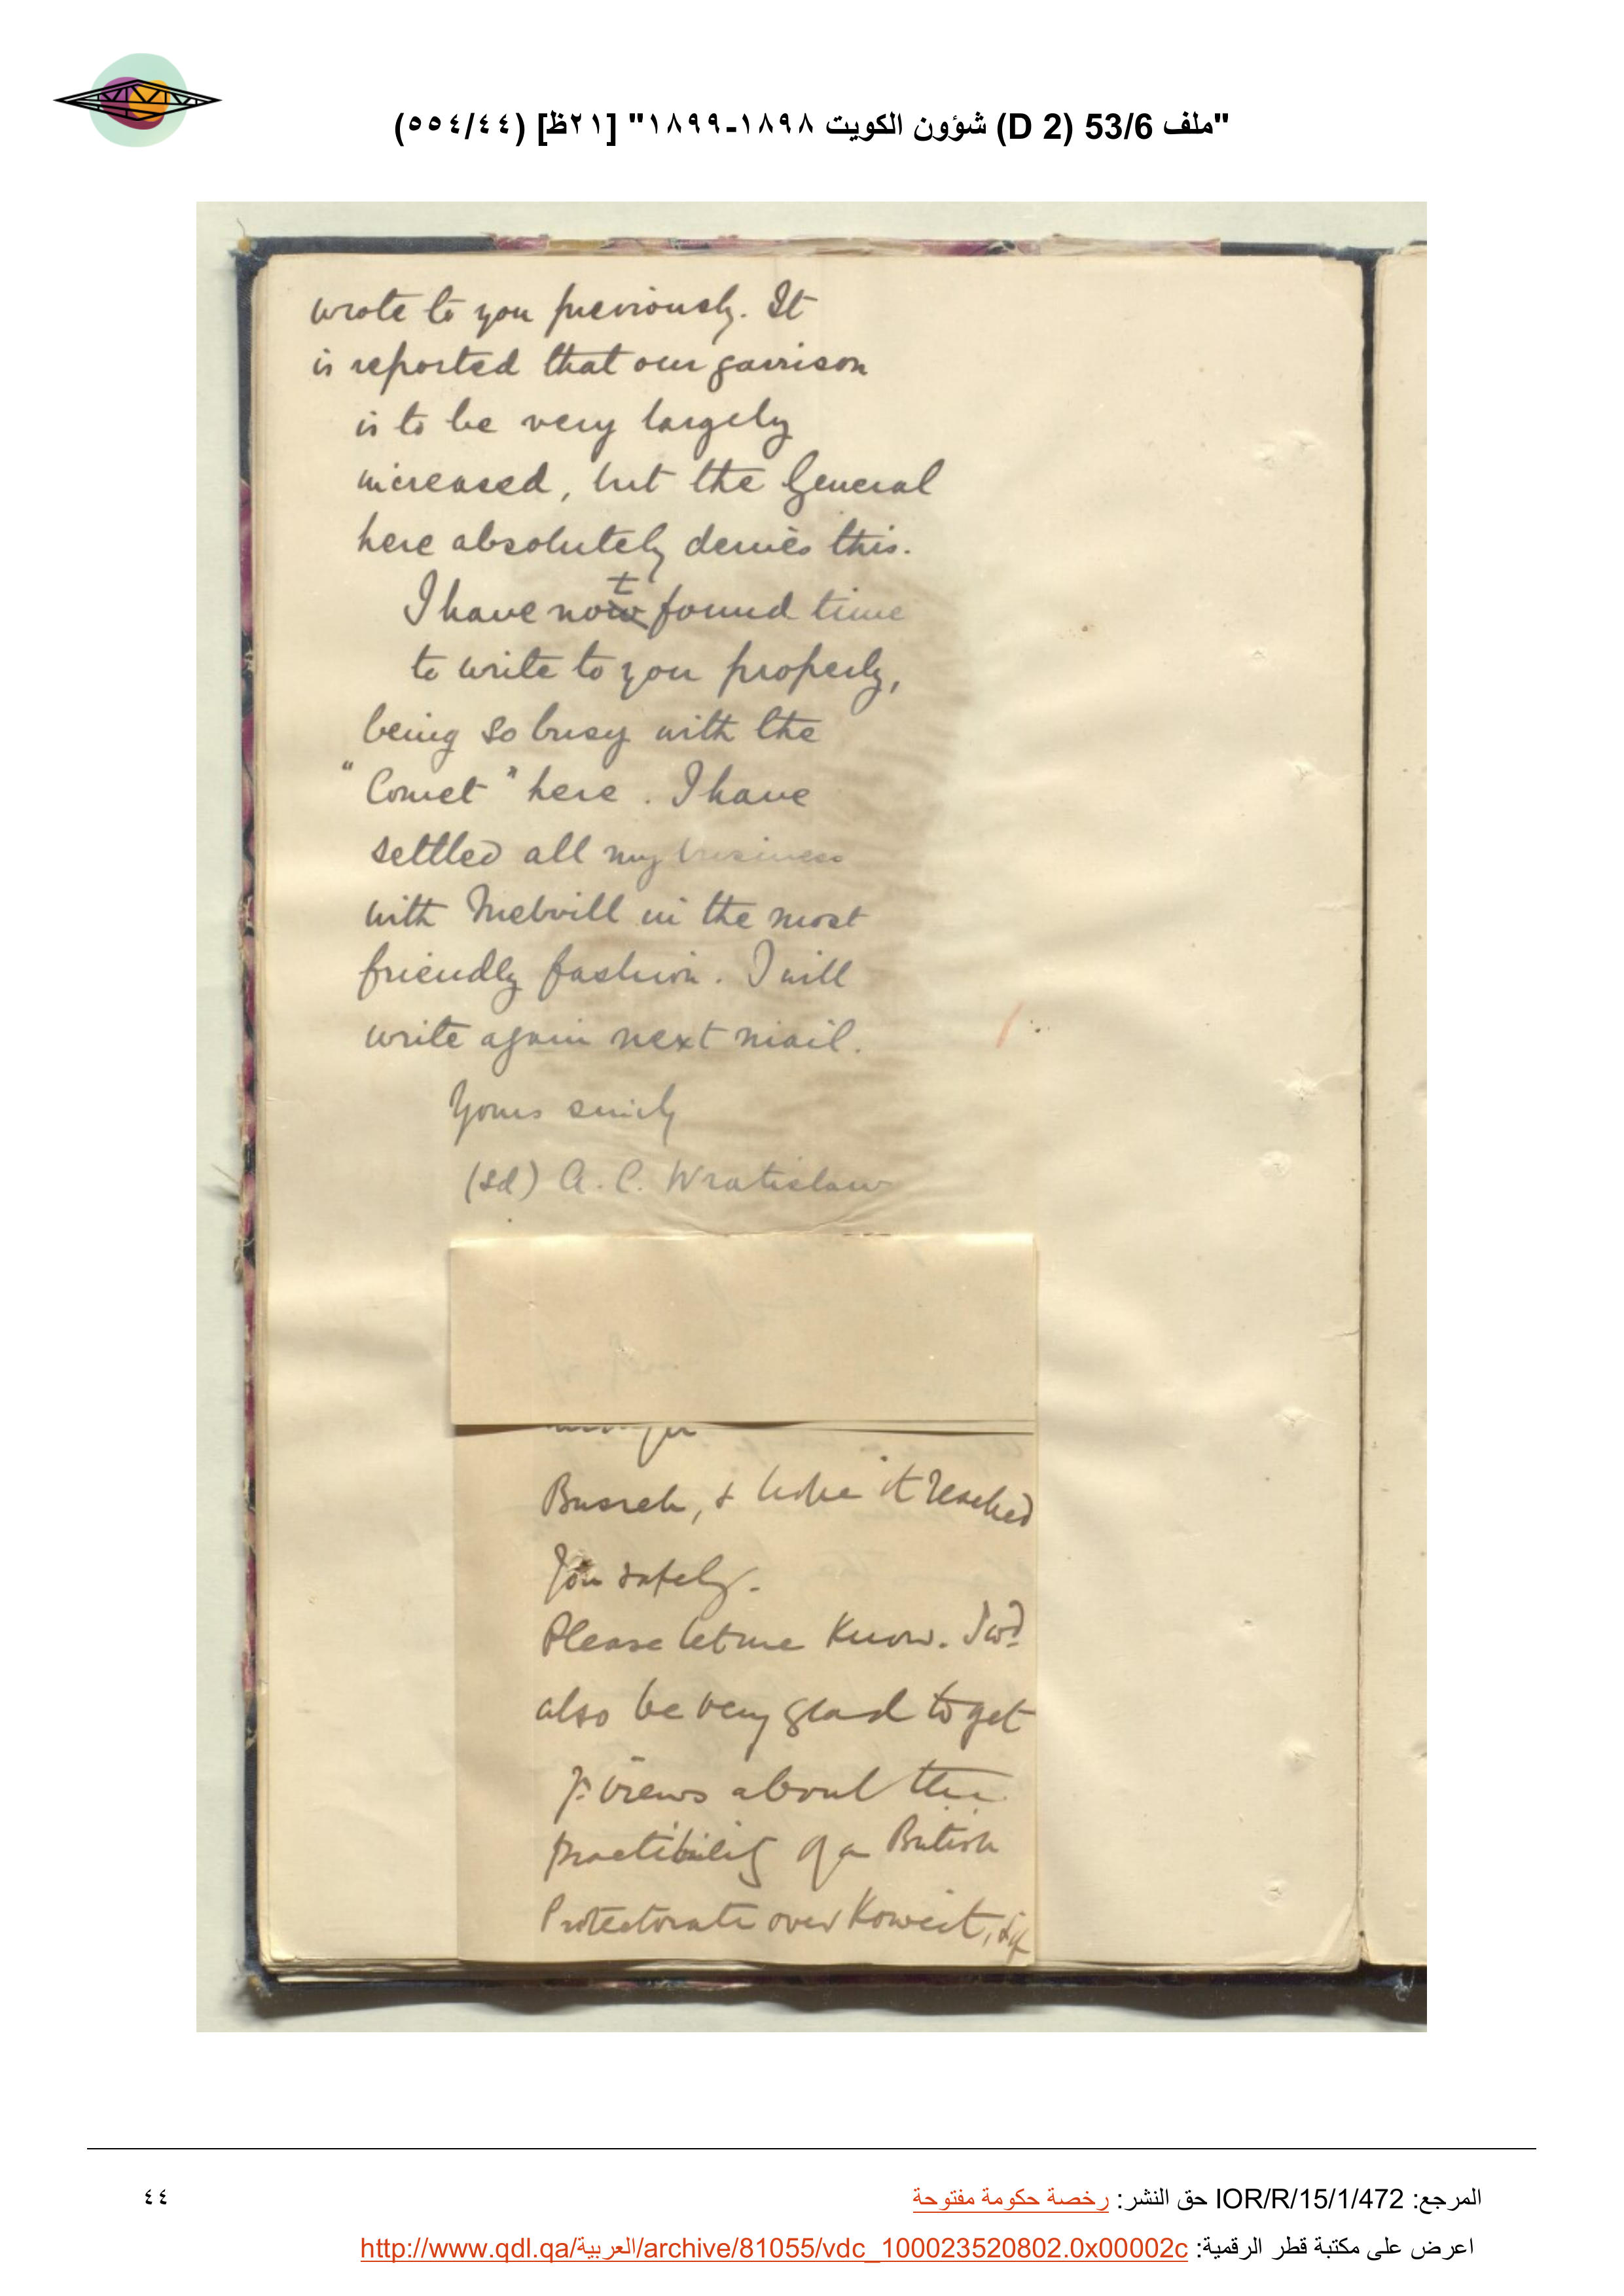 "ملف 53/6 (D 2) شؤون الكويت ١٨٩٨-١٨٩٩" [٢١ظ] (٥٥٤/٤٤)
wrote to you previously. It
is reported that our garrison
is to be very largely
increased, but the General
here absolutely denies this.
I have not found time
to write to you properly,
being so busy with the
"Comet" here. I have
settled all my business
with Melvill in the most
friendly fashion. I will
write again next mail.
Yours sincly
(sd) A. C. Wratislaw
Busreh, & hope it reached
you safely.
Please let me know. I wd
also be very glad to get
yr views about the
practibility of a British
Protectorate over Koweit, & if
المرجع: IOR/R/15/1/472 حق النشر: رخصة حكومة مفتوحة
٤٤
اعرض على مكتبة قطر الرقمية: http://www.qdl.qa/العربية/archive/81055/vdc_100023520802.0x00002c